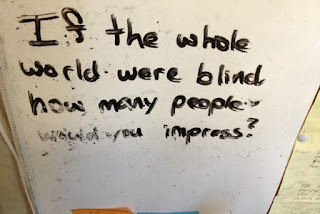 If the whole
world were blind
how many people
would you impress?